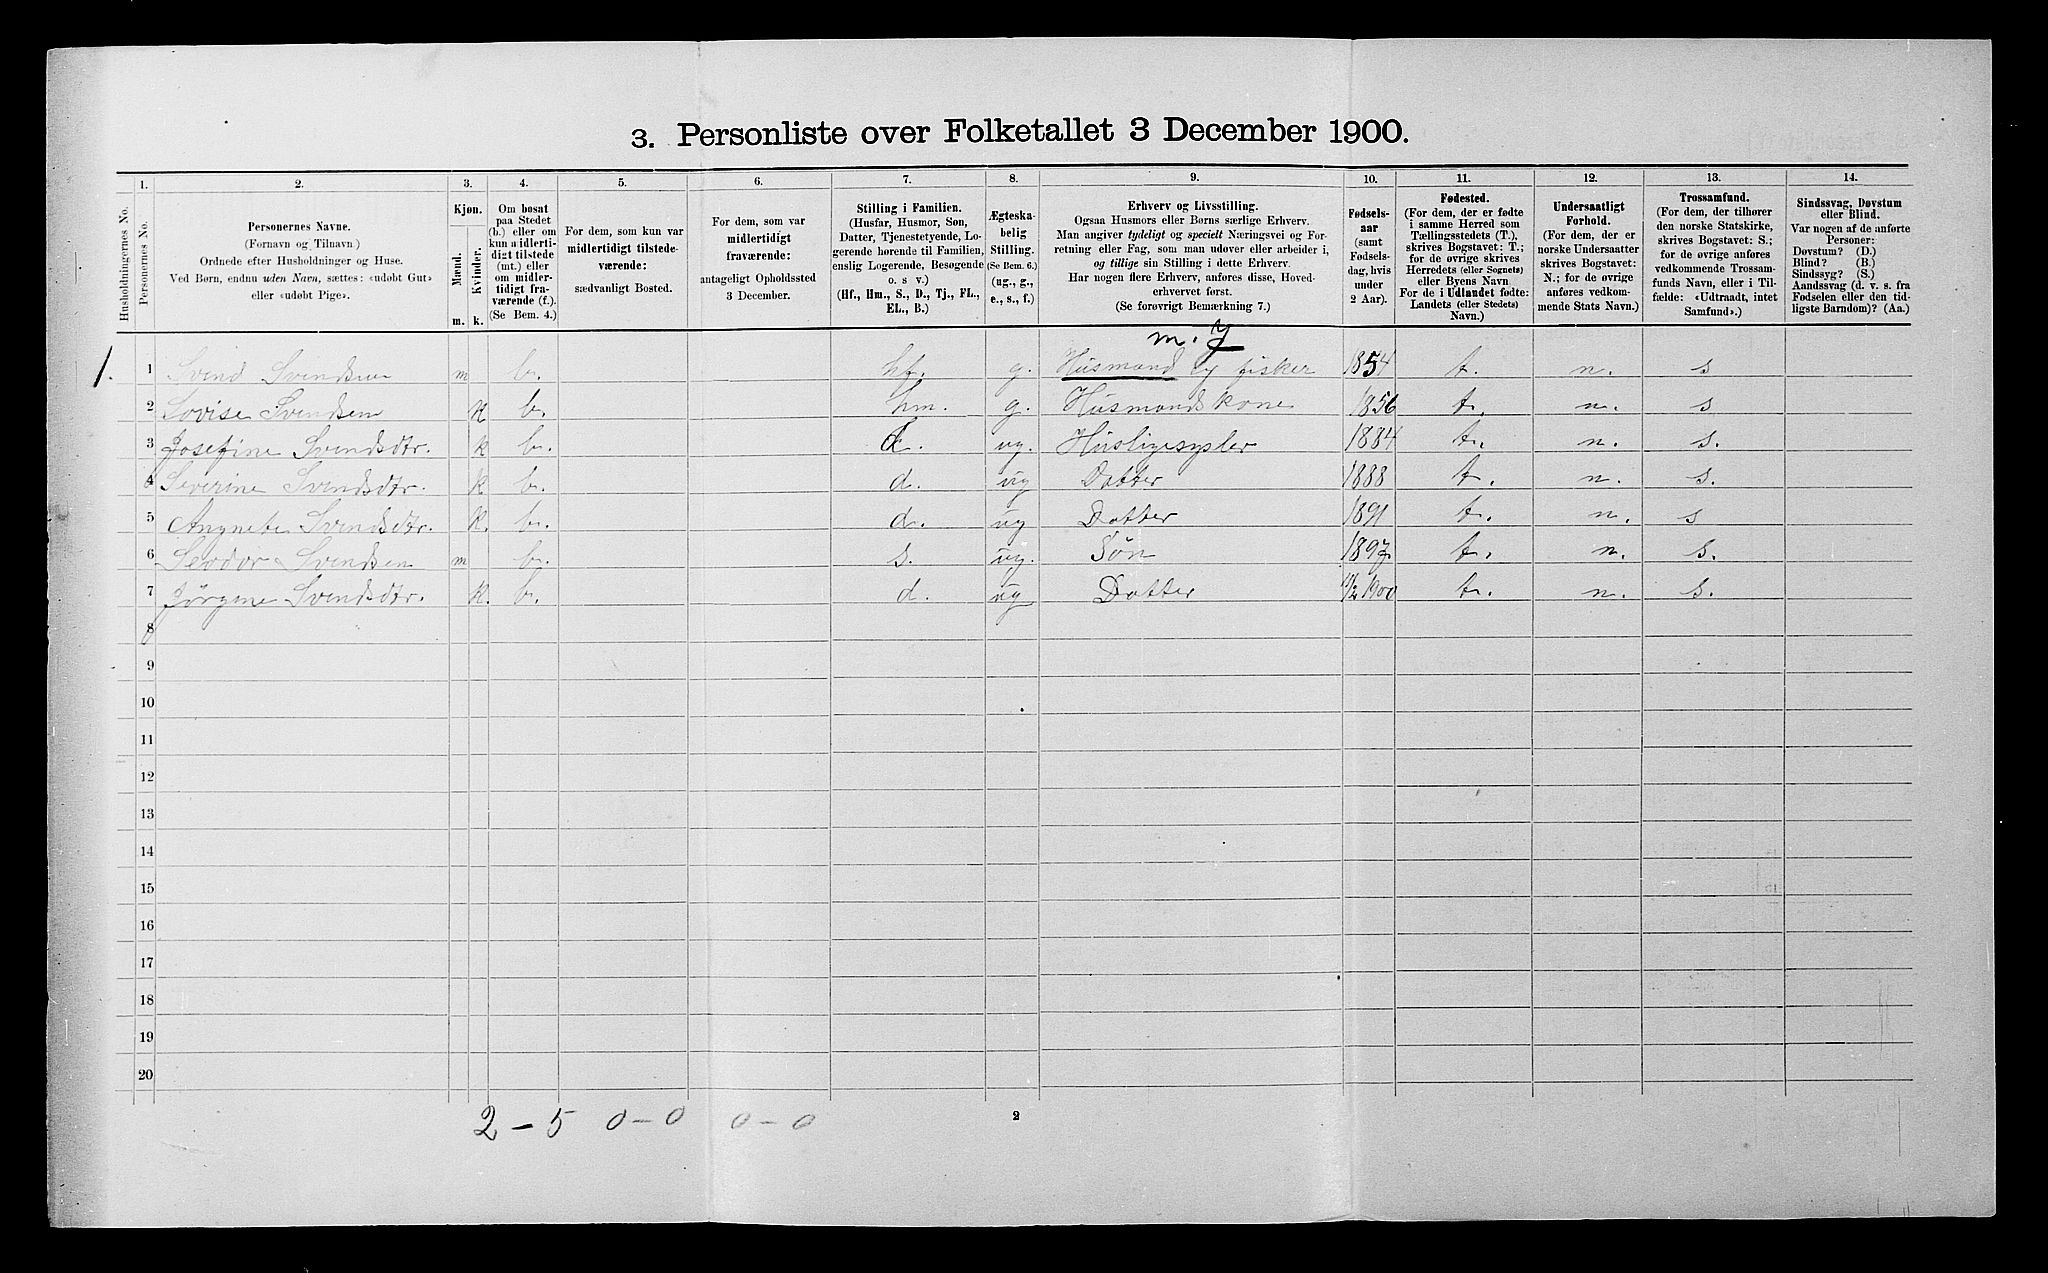 3. Personliste over Folketallet 3 December 1900.
1. 2. 3. 4. 5. 6. 7. 8. 9. 10. 11. 12. 13. 14.
Husholdningernes No.
Personernes No.
Personernes Navne.
(Fornavn og Tilnavn)
Ordnede efter Husholdninger og Huse.
Ved Børn, endnu uden Navn, sættes: «udøbt Gut»
eller «udøbt Pige».
Kjøn.
Mænd.
Kvinder.
m. k.
Om bosat
paa Stedet
(b.) eller om
kun midlerti-
digt tilstede
(mt.) eller
om midler-
tidigt fra-
værende (f.).
(Se Bem. 4.)
For dem, som kun var
midlertidigt tilstede-
værende:
sædvanligt Bosted.
For dem, som var
midlertidigt
fraværende:
antageligt Opholdssted
3 December.
Stilling i Familien.
(Husfar, Husmor, Søn,
Datter, Tjenestetyende, Lo-
gerende hørende til Familien,
enslig Logerende, Besøgende
o. s v.)
(Hf., Hm., S., D., Tj., FL.,
EL., B.)
Ægteska-
belig
Stilling.
(Se Bem. 6.)
(ug., g.,
e., s., f.)
Erhverv og Livsstilling.
Ogsaa Husmors eller Børns særlige Erhverv.
Man angiver tydeligt og specielt Næringsvei og For-
retning eller Fag, som man udøver eller arbeider i,
og tillige sin Stilling i dette Erhverv.
Har nogen flere Erhverv, anføres disse, Hoved-
erhvervet først.
(Se forøvrigt Bemærkning 7.)
Fødsels-
aar
(samt
Fødsels-
dag, hvis
under
2 Aar).
Fødested.
(For dem, der er fødte
i samme Herred som
Tællingsstedets (T.),
skrives Bogstavet: T.;
for de øvrige skrives
Herredets (eller Sognets)
eller Byens Navn
For de i Udlandet fødte:
Landets (eller Stedets)
Navn.)
Undersaatligt
Forhold.
(For dem, der er
norske Undersaatter
skrives Bogstavet:
N.; for de øvrige
anføres vedkom-
mende Stats Navn.)
Trossamfund.
(For dem, der tilhører
den norske Statskirke,
skrives Bogstavet: S.;
for de øvrige anføres
vedkommende Trossam-
funds Navn, eller i Til-
fælde: «Udtraadt, intet
Samfund».)
Sindssvag, Døvstum
eller Blind.
Var nogen af de anførte
Personer:
Døvstum? (D.)
Blind? (B.)
Sindssyg? (S.)
Aandssvag (d. v. s. fra
Fødselen eller den tid-
ligste Barndom)? (Aa.)
m. J
1. 1 Svend Svendsen m b. hf. g. Husmand og fisker 1854 t. n. s
2 Lovise Svendsen k b. hm. g. Husmandskone 1856 t. n. s
3 Josefine Svendsdtr. k b. d. ug. Husligesysler 1884 t. n. s.
4 Severine Svendsdtr. k b. d. ug Datter 1888 t. n. s.
5 Angnete Svendsdtr. k. b. d. ug Datter 1891 t. n. s
6 Svendsen m b. s. ug. Søn 1897 t. n. s.
7 Jørgine Svendsdtr. k. b. d. ug Datter 1900 t. n. s.
8
9
10
11
12
13
14
15
16
17
18
19
20
2 – 5 0 – 0 0 – 0 2